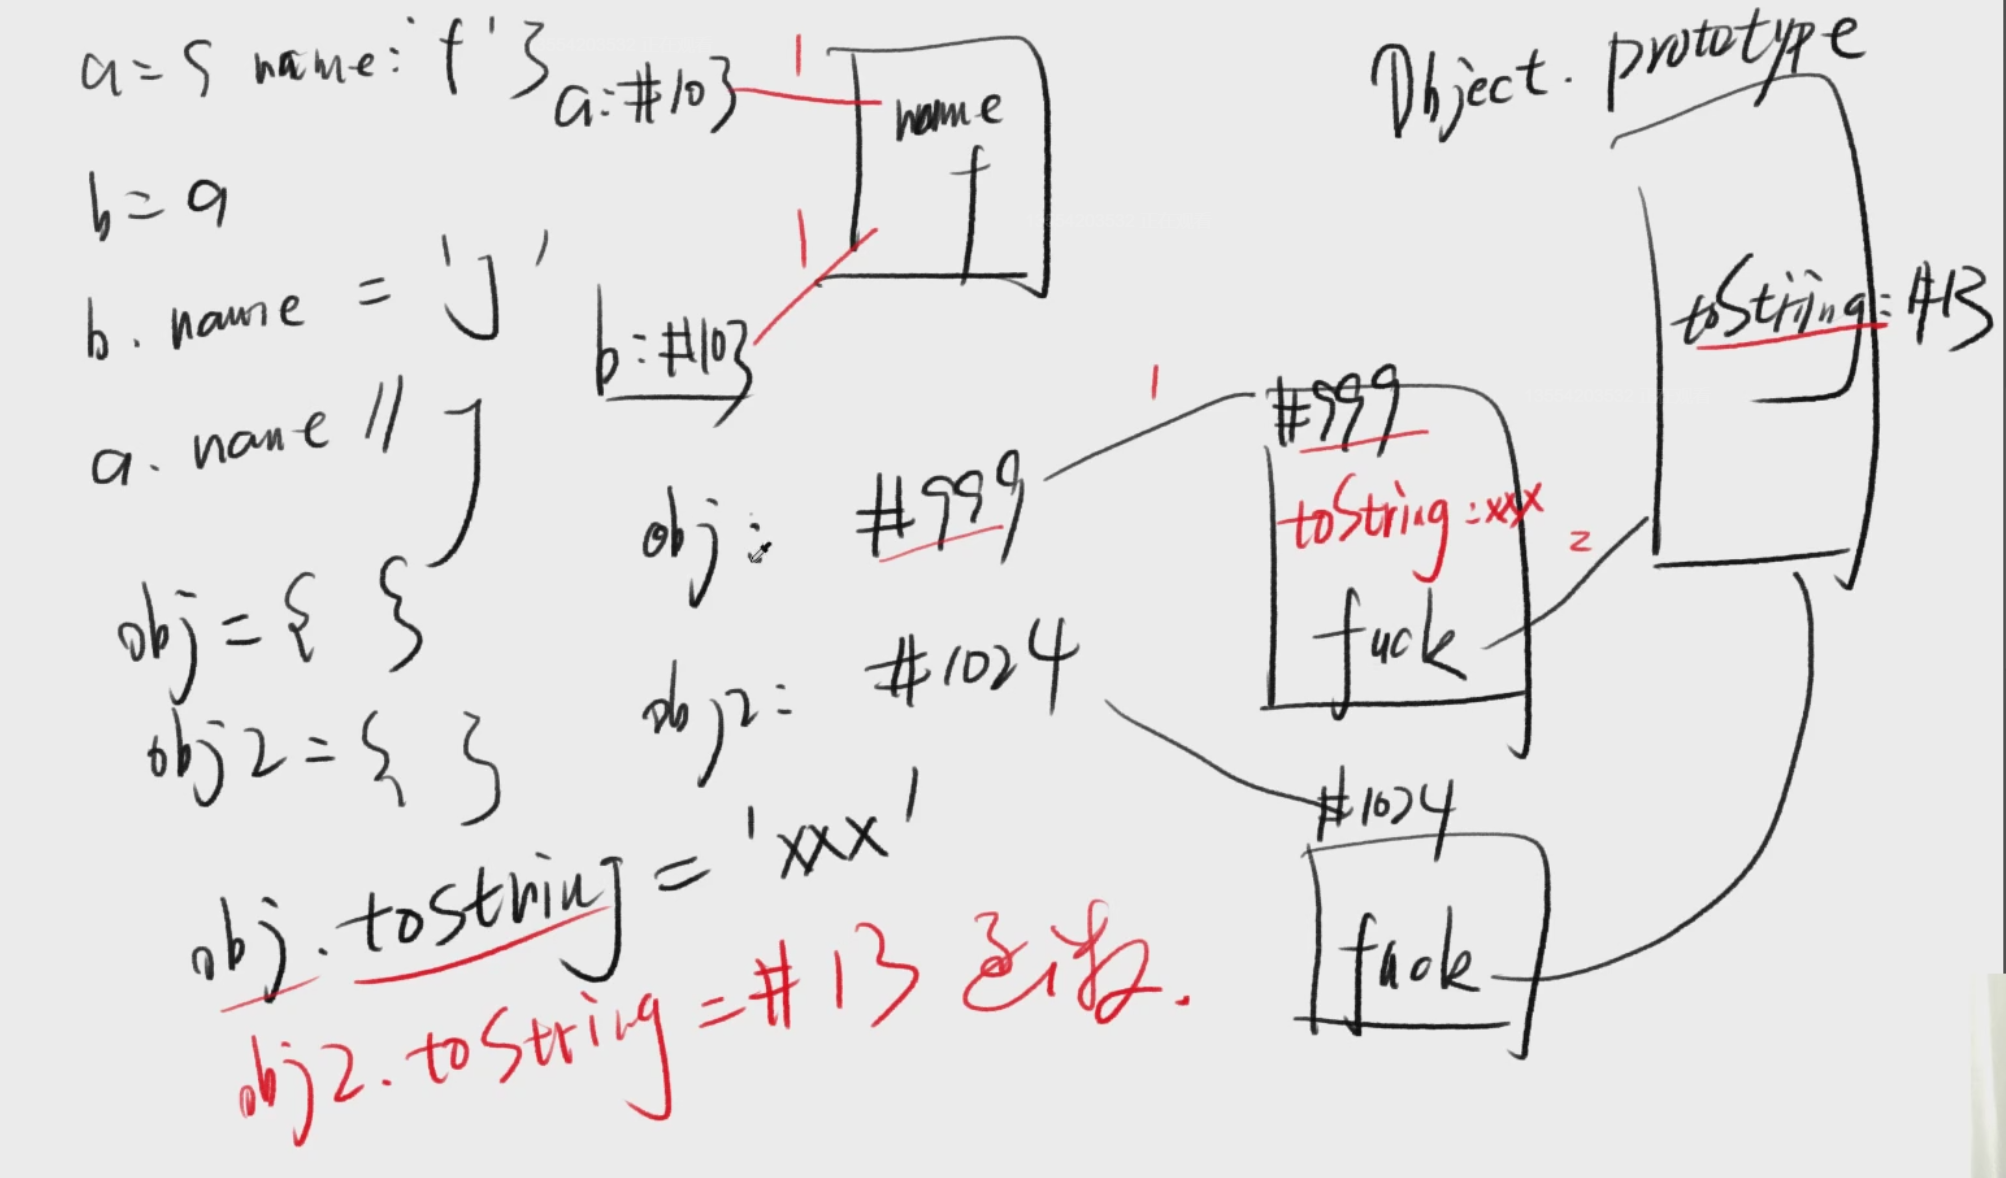 a = { name: 'f' }
a: #103
name
f
Object. prototype
b = a
b. name = 'j'
b: #103
toString: #13
a. name // j
obj: #999
#999
toString: xxx
fuck
obj = { }
obj2: #1024
obj2 = { }
#1024
fuck
obj. toString = 'xxx'
obj2. toString = #13 函数.
1
1
1
2